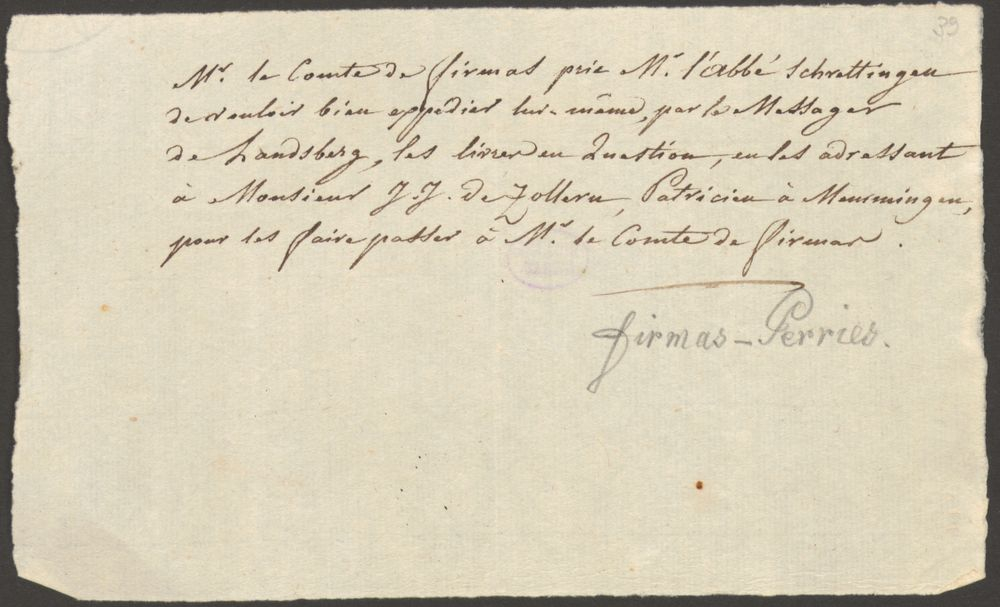 39
Mr. le Comte de firmas prie Mr. l'abbé Schrettingen
de vouloir bien expédier lui-même, par le Messager
de Landsberg, les livres en Question, en les adressant
à Monsieur J. J. de Zollern, Patricien à Memmingen,
pour les faire passer à Mr. le Comte de firmas.
firmas-Perriés.